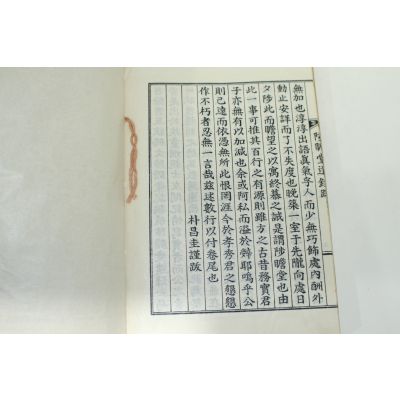 陟瞻堂遺錄跋
無加也淳淳出語眞氣孚人而少無巧飾處內酬外
動止安詳而了不失度也晚築一室于先隴向處日
夕陟此而瞻望之以寓終慕之誠是謂陟瞻堂也由
此一事可推其百行之有源則雖方之古昔務實君
子亦無有以加減也余或阿私而溢於辭耶嗚乎公
則已遠而依憑無所此恨罔涯今於孝秀君之懇懇
作不朽者忍無一言哉玆述數行以付卷尾也
朴昌圭謹跋